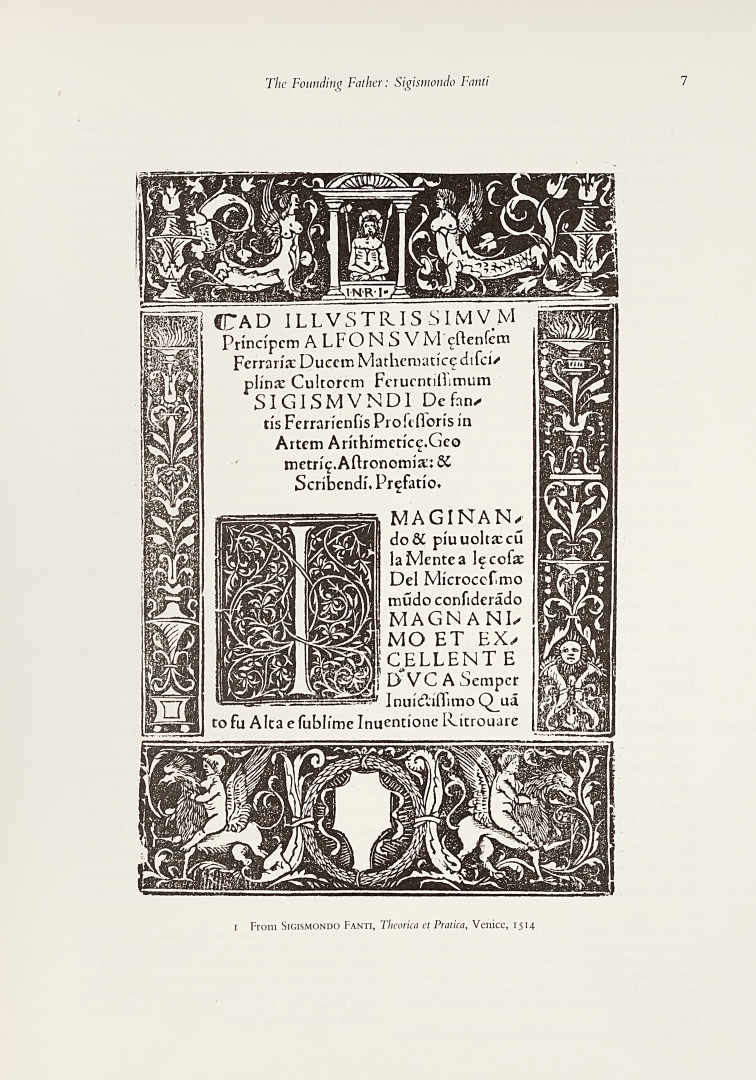 The Founding Father: Sigismondo Fanti
7
I·N·R·I·
⸿AD ILLVSTRISSIMVM
Principem ALFONSVM ęſtenſem
Ferrariæ Ducem Mathematicę diſci⸗
plinæ Cultorem Feruentiſſimum
SIGISMVNDI De fan⸗
tis Ferrarienſis Profeſſoris in
Artem Arithimeticę.Geo
metrię.Aſtronomiæ: &
Scribendi. Pręfatio.
IMAGINAN⸗
do & piu uoltæ cū
la Mente a lę coſæ
Del Microcoſmo
mūdo conſiderādo
MAGNANI⸗
MO ET EX⸗
CELLENTE
DVCA Semper
Inuictiſſimo Quā
to fu Alta e ſublime Inuentione Ritrouare
1 From SIGISMONDO FANTI, Theorica et Pratica, Venice, 1514